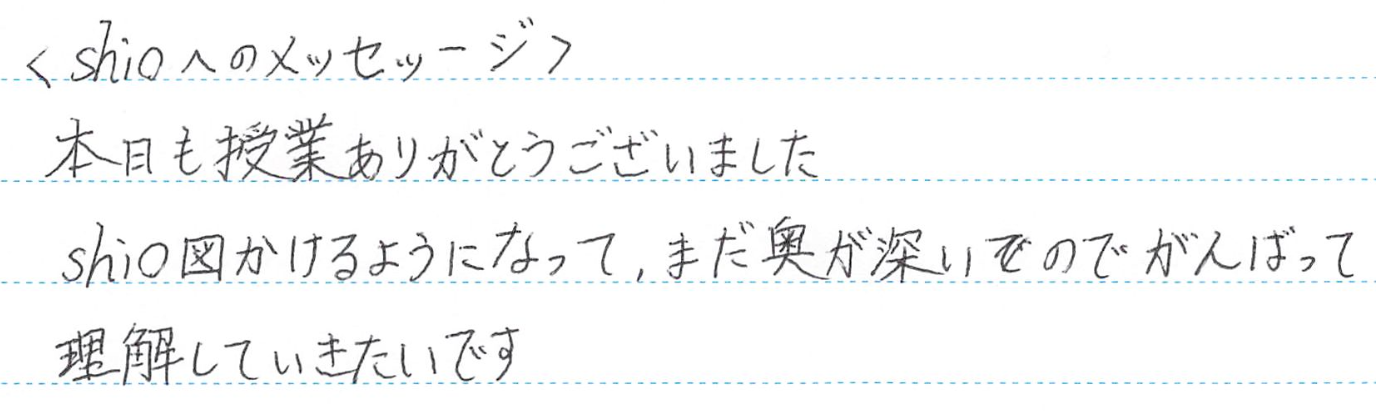 <shioへのメッセッージ>
本日も授業ありがとうございました
shio図かけるようになって,まだ奥が深いでのでがんばって
理解していきたいです